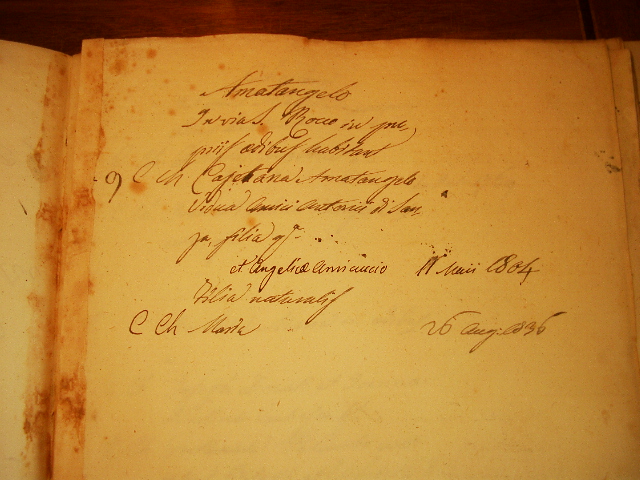 Amatangelo
In via S. Rocco in pro,
priis ædibus habitant
9 C Ch Cajetana Amatangelo
Vidua Amici Antonii di San,
filia qm
et Angelicæ Amicuccio 11 Maii 1804
Filia naturalis
C Ch Maria 26 Aug. 1836